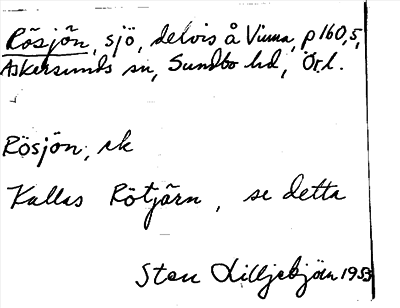 Rösjön, sjö, delvis å Vinna, p 160,5,
Askersunds sn, Sundbo hd, Örl.
Rösjön, ek
Kallas Rötjärn, se detta
Sten Lilljebjörn 1953